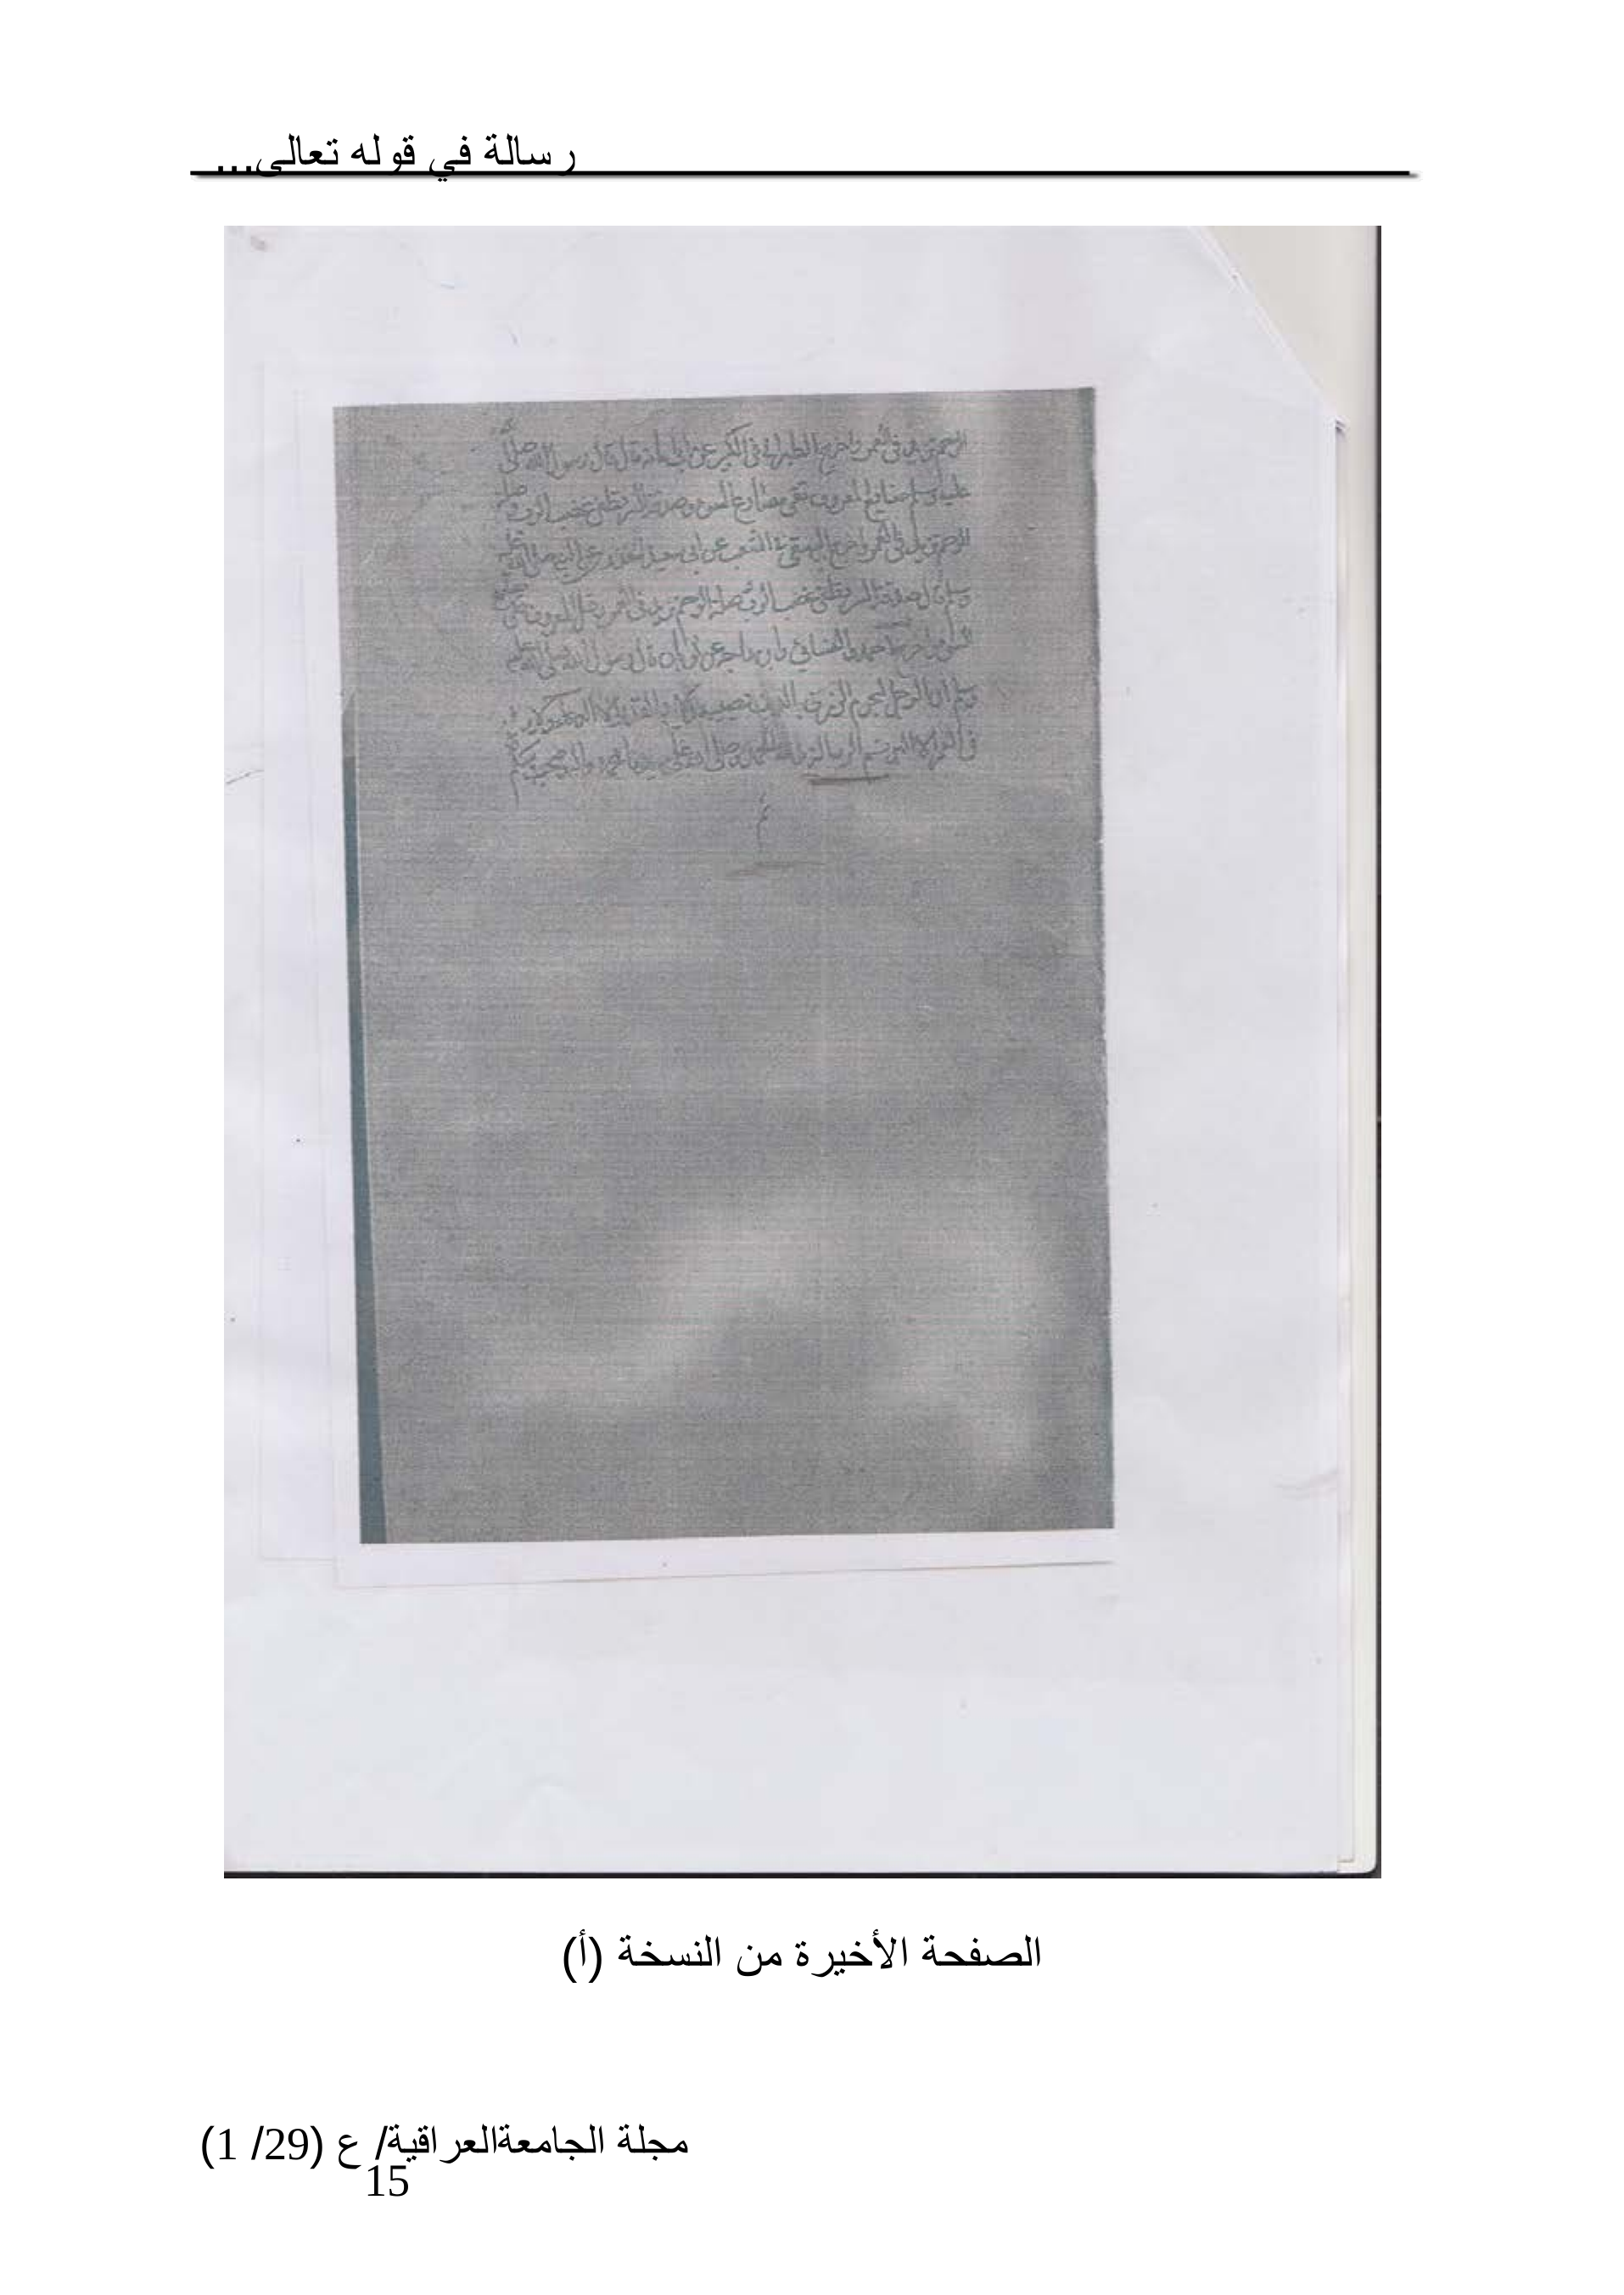 رسالة في قوله تعالى...
الرحم تزيد في العمر واخرج الطبراني في الكبير عن ابي امامة قال قال رسول الله صلى
عليه وسلم صنايع المعروف تقى مصارع السوء وصدقة السر تطفئ غضب الرب وصلة
الرحم تزيد في العمر واخرج البيهقي في الشعب عن ابي سعيد الخدري عن النبي صلى الله عليه
وسلم قال صدقة السر تطفئ غضب الرب وصلة الرحم تزيد في العمر وفعل المعروف يقى
السوء واخرج احمد والنسائي وابن ماجه عن ثوبان قال رسول الله صلى الله عليه
وسلم ان الرجل ليحرم الرزق بالذنب يصيبه ولا يرد القدر الا الدعاء ولا يزيد
في العمر الا البر تم الرسالة
تم
الصفحة الأخيرة من النسخة (أ)
مجلة الجامعةالعراقية/ ع (29/ 1)
15